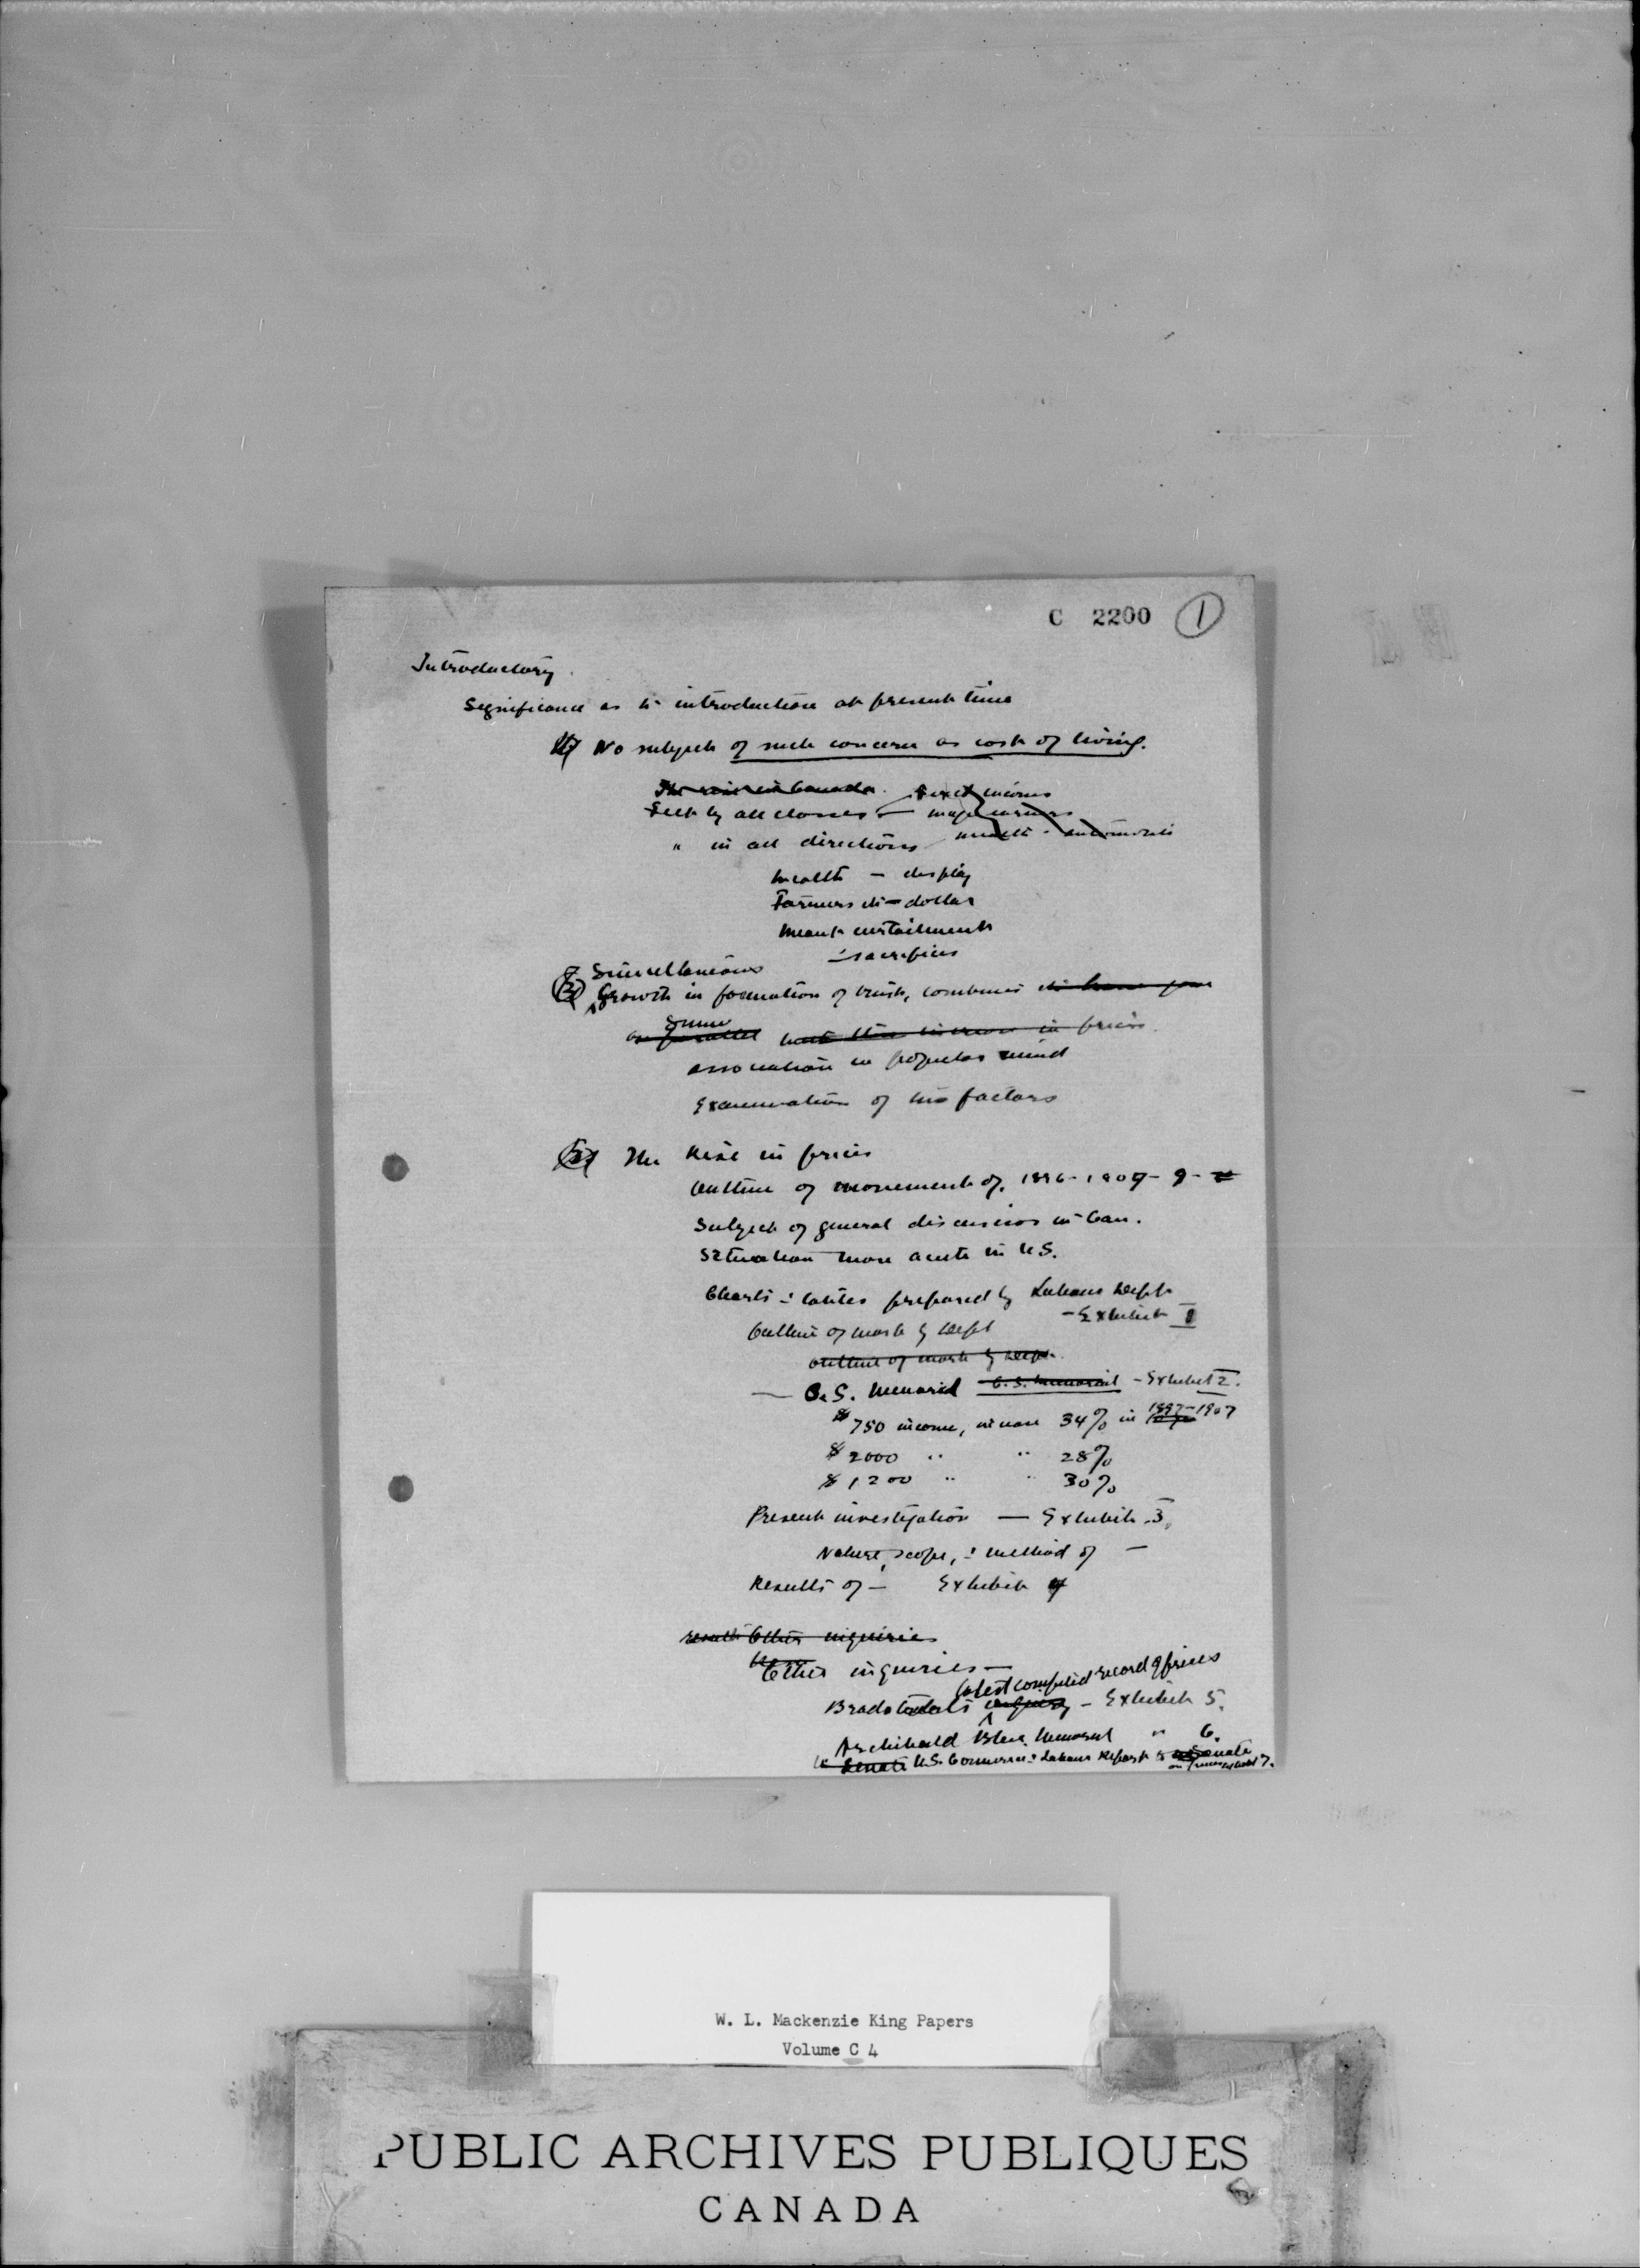 C 2200 1
Introductory
Significance as to introduction at present time
(1) No subject of such concern as cost of living.
The rise in Canada. Fixed incomes
Felt by all classes - wage earners
" in all directions wealth - automobiles
Wealth - display
Farmers - dollar
Meant curtailments
sacrifices
Simultaneous
(2) Growth in formation of trusts, combines
in prices
association in popular mind
Examination of two factors
The Rise in prices
Outline of movement of, 1896-1907-9-
Subject of general discussion in Can.
Situation more acute in U.S.
Charts & tables prepared by Labour Dept
- Exhibit 1
Outline of work by Dept
outline of work by Dept.
- C.S. Memorial C.S. Memorial - Exhibit 2.
$750 income, increase 34% in 1897-1907
$2000 " " 28%
$1200 " " 30%
Present investigation — Exhibit 3.
Nature, scope, & method of —
Results of - Exhibit 4
result Other inquiries
Other inquiries —
latest compiled record of prices
Bradstreets inquiry - Exhibit 5.
Archibald Blue Memorial " 6.
Senate U.S. Commerce & Labour Report to Senate
on prices Exhibit 7.
W. L. Mackenzie King Papers
Volume C 4
PUBLIC ARCHIVES PUBLIQUES
CANADA